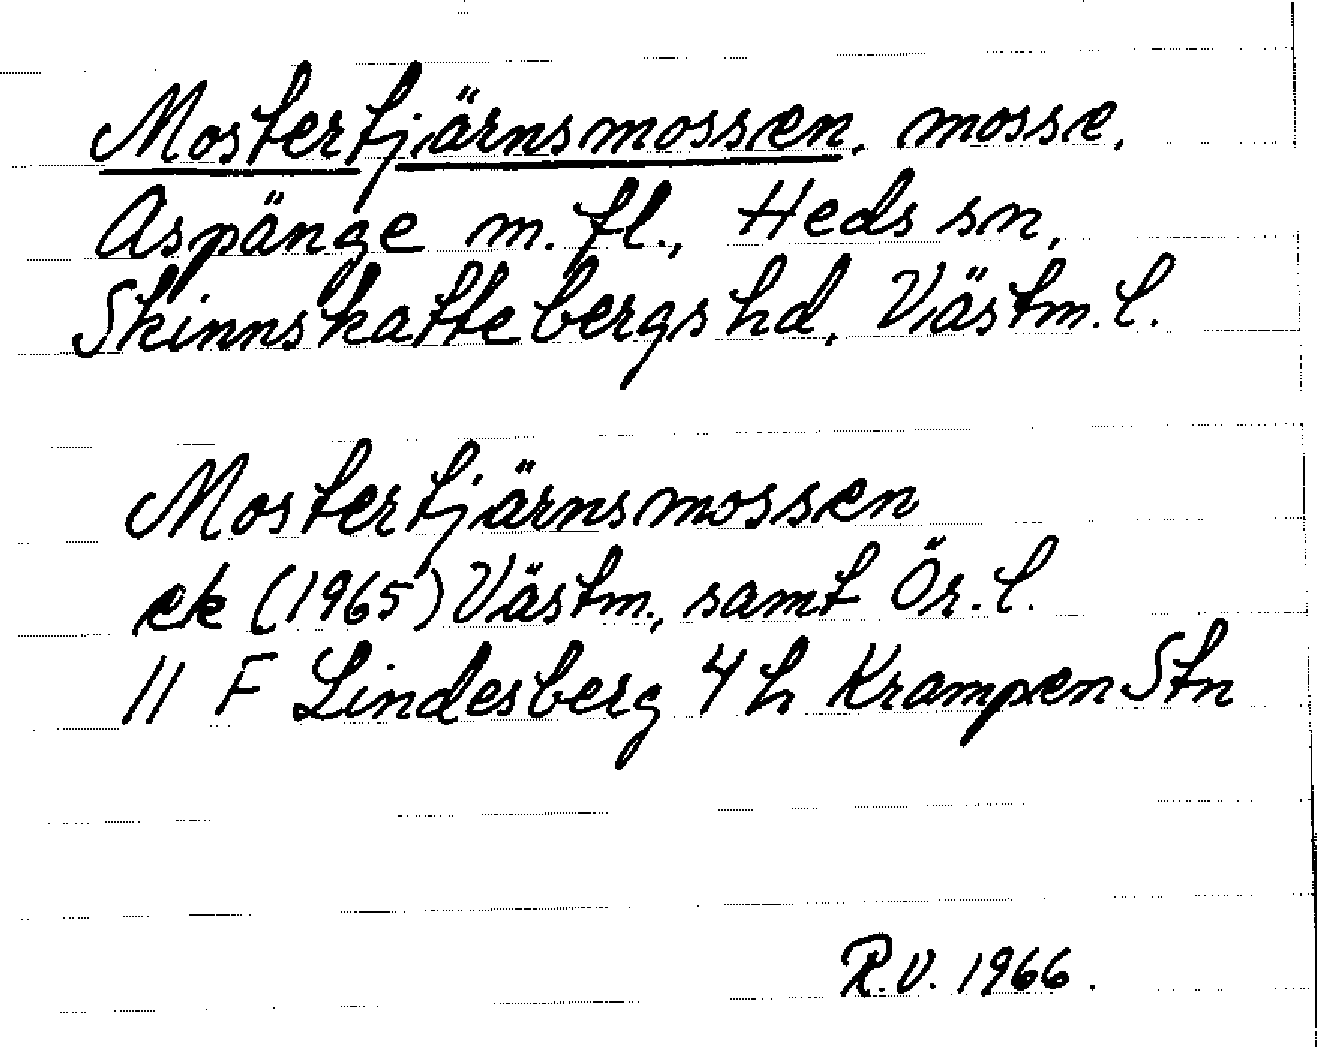 Mostertjärnsmossen, mosse,
Aspänge m.fl., Heds sn,
Skinnskattebergs hd, Västm.l.
Mostertjärnsmossen
ek (1965) Västm., samt Ör.l.
11 F Lindesberg 4 h Krampen Stn
R.V. 1966.